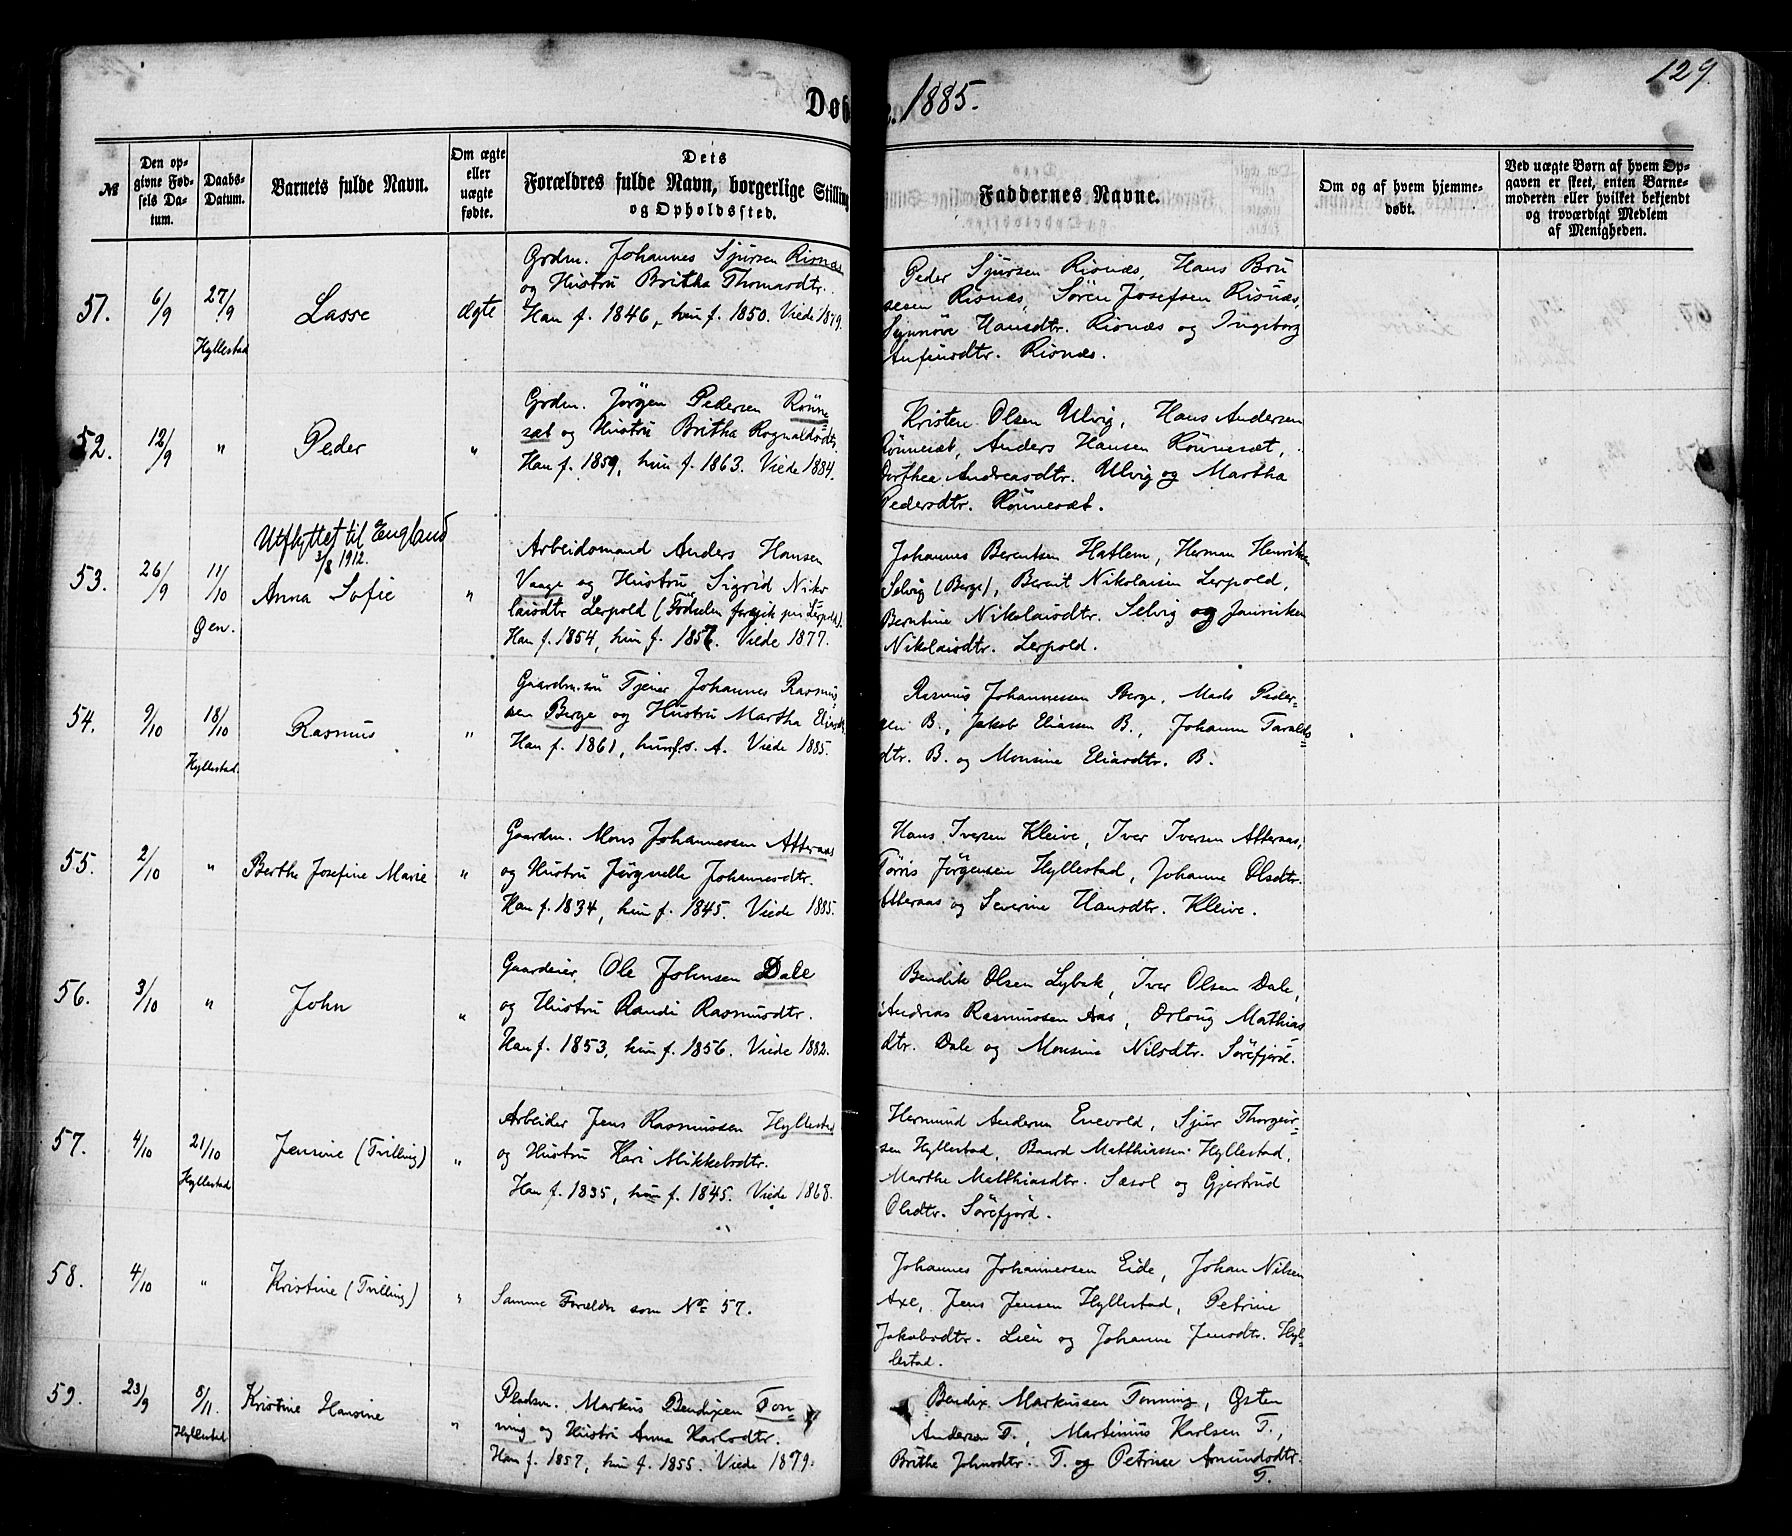 129.
Døb
1885.
№
Den op-
givne Fød-
sels Da-
tum.
Daabs-
Datum.
Barnets fulde Navn.
Om ægte
eller
uægte
fødte.
Dets
Forældres fulde Navn, borgerlige Stilling
og Opholdssted.
Faddernes Navne.
Om og af hvem hjemme-
døbt.
Ved uægte Børn af hvem Op-
gaven er skeet, enten Barne-
moderen eller hvilket bekjendt
og troværdigt Medlem
af Menigheden.
51.
6/9
27/9
Hyllestad
Lasse
Ægte
Grdm. Johannes Sjursen Risnæs
og Hustru Britha Thomasdtr.
Han f. 1846, hun f. 1850. Viede 1879.
Peder Sjursen Risnæs, Hans Bru
sesen Risnæs, Søren Josefsen Risnæs,
Synnöve Hansdtr. Risnæs og Ingeborg
Anfinsdtr. Risnæs.
52.
12/9
"
Peder
"
Grdm. Jörgen Pedersen Rönne
sæt og Hustru Britha Rognaldsdtr.
Han f. 1859, hun f. 1863. Viede 1884.
Kristen Olsen Ulvig, Hans Andersen
Rönnesæt, Anders Hansen Rönnesæt,
Dorthea Andreasdtr. Ulvig og Martha
Pedersdtr. Rönnesæt.
53.
26/9
11/10
Øen.
Utflyttet til England
3/8 1912.
Anna Sofie
"
Arbeidsmand Anders Hansen
Vaage og Hustru Sigrid Niko
laisdtr Lerpold (Fødselen foregik paa Lerpold).
Han f. 1854, hun f. 1857. Viede 1877.
Johannes Berentsen Hatlem, Herman Henriksen
Selvig (Berge), Berent Nikolaisen Lerpold,
Berntine Nikolaisdtr. Selvig og Janniken
Nikolaisdtr. Lerpold.
54.
9/10
18/10
Hyllestad.
Rasmus
"
Gaardm.sön Tjener Johannes Rasmus
sen Berge og Hustru Martha Eliasdtr.
Han f. 1861, hun f. s. A. Viede 1885.
Rasmus Johannesen Berge, Mads Peder-
sen B., Jakob Eliassen B., Johanne Taralds-
dtr. B. og Monsine Eliasdtr. B.
55.
2/10
"
Berthe Josefine Marie
"
Gaardm. Mons Johannessen Atteraas
og Hustru Jørgnelle Johannesdtr.
Han f. 1834, hun f. 1845. Viede 1885.
Hans Iversen Kleive, Iver Iversen Atteraas,
Tørris Jørgensen Hyllestad, Johanne Olsdtr.
Atteraas og Severine Hansdtr. Kleive.
56.
3/10
"
John
"
Gaardeier Ole Johnsen Dale
og Hustru Randi Rasmusdtr.
Han f. 1853, hun f. 1856. Viede 1882.
Bendik Olsen Lybæk, Iver Olsen Dale,
Andrias Rasmussen Aas, Orloug Mathias
dtr. Dale og Monsine Nilsdtr. Sörefjord.
57.
4/10
21/10
Hyllestad
Jensine (Tvilling)
"
Arbeider Jens Rasmussen Hyllestad
og Hustru Kari Mikkelsdtr.
Han f. 1835, hun f. 1845. Viede 1868.
Hermund Andersen Enevold, Sjur Thorgeir-
sen Hyllestad, Baard Matthiassen Hyllestad,
Marthe Matthiasdtr. Sæsol og Gjertrud
Olsdtr. Sörefjord.
58.
4/10
"
Kristine (Tvilling)
"
Samme Forældre som No 57.
Johannes Johannessen Eide, Johan Nilsen
Axe, Jens Jensen Hyllestad, Petrine
Jakobsdtr. Lien og Johanne Jensdtr. Hyl-
lestad.
59.
23/9
8/11.
Hyllestad
Kristine Hansine
"
Pladsm. Markus Bendixen Ton-
ning og Hustru Anna Karlsdtr.
Han f. 1857, hun f. 1855. Viede 1879.
Bendix Markussen Tonning, Østen
Andersen T., Martinius Karlsen T.,
Brithe Johnsdtr. T. og Petrine Amundsdtr.
T.